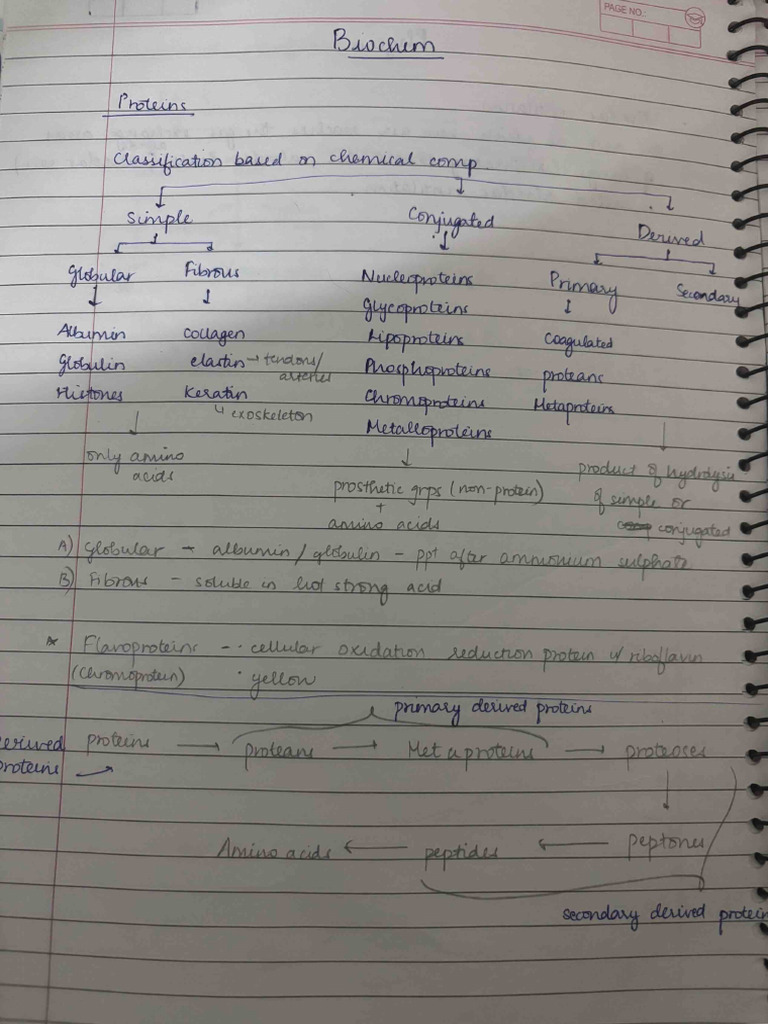 PAGE NO.:
Biochem
Proteins
Classification based on chemical comp
Simple Conjugated Derived
Globular Fibrous Nucleoproteins Primary Secondary
Glycoproteins
Albumin collagen Lipoproteins Coagulated
Globulin elastin → tendons/ arteries Phosphoproteins proteans
Histones Keratin Chromoproteins Metaproteins
↳ exoskeleton Metalloproteins
only amino acids
prosthetic grps (non-protein) + amino acids
product of hydrolysis of simple or conjugated
A) Globular → albumin/globulin - ppt after ammonium sulphate
B) Fibrous - soluble in hot strong acid
* Flavoproteins - · cellular oxidation reduction protein w/ riboflavin
(Chromoprotein) · yellow
primary derived proteins
erived proteins → proteans → Metaproteins → proteoses
roteins →
Amino acids ← peptides ← peptones
secondary derived protein